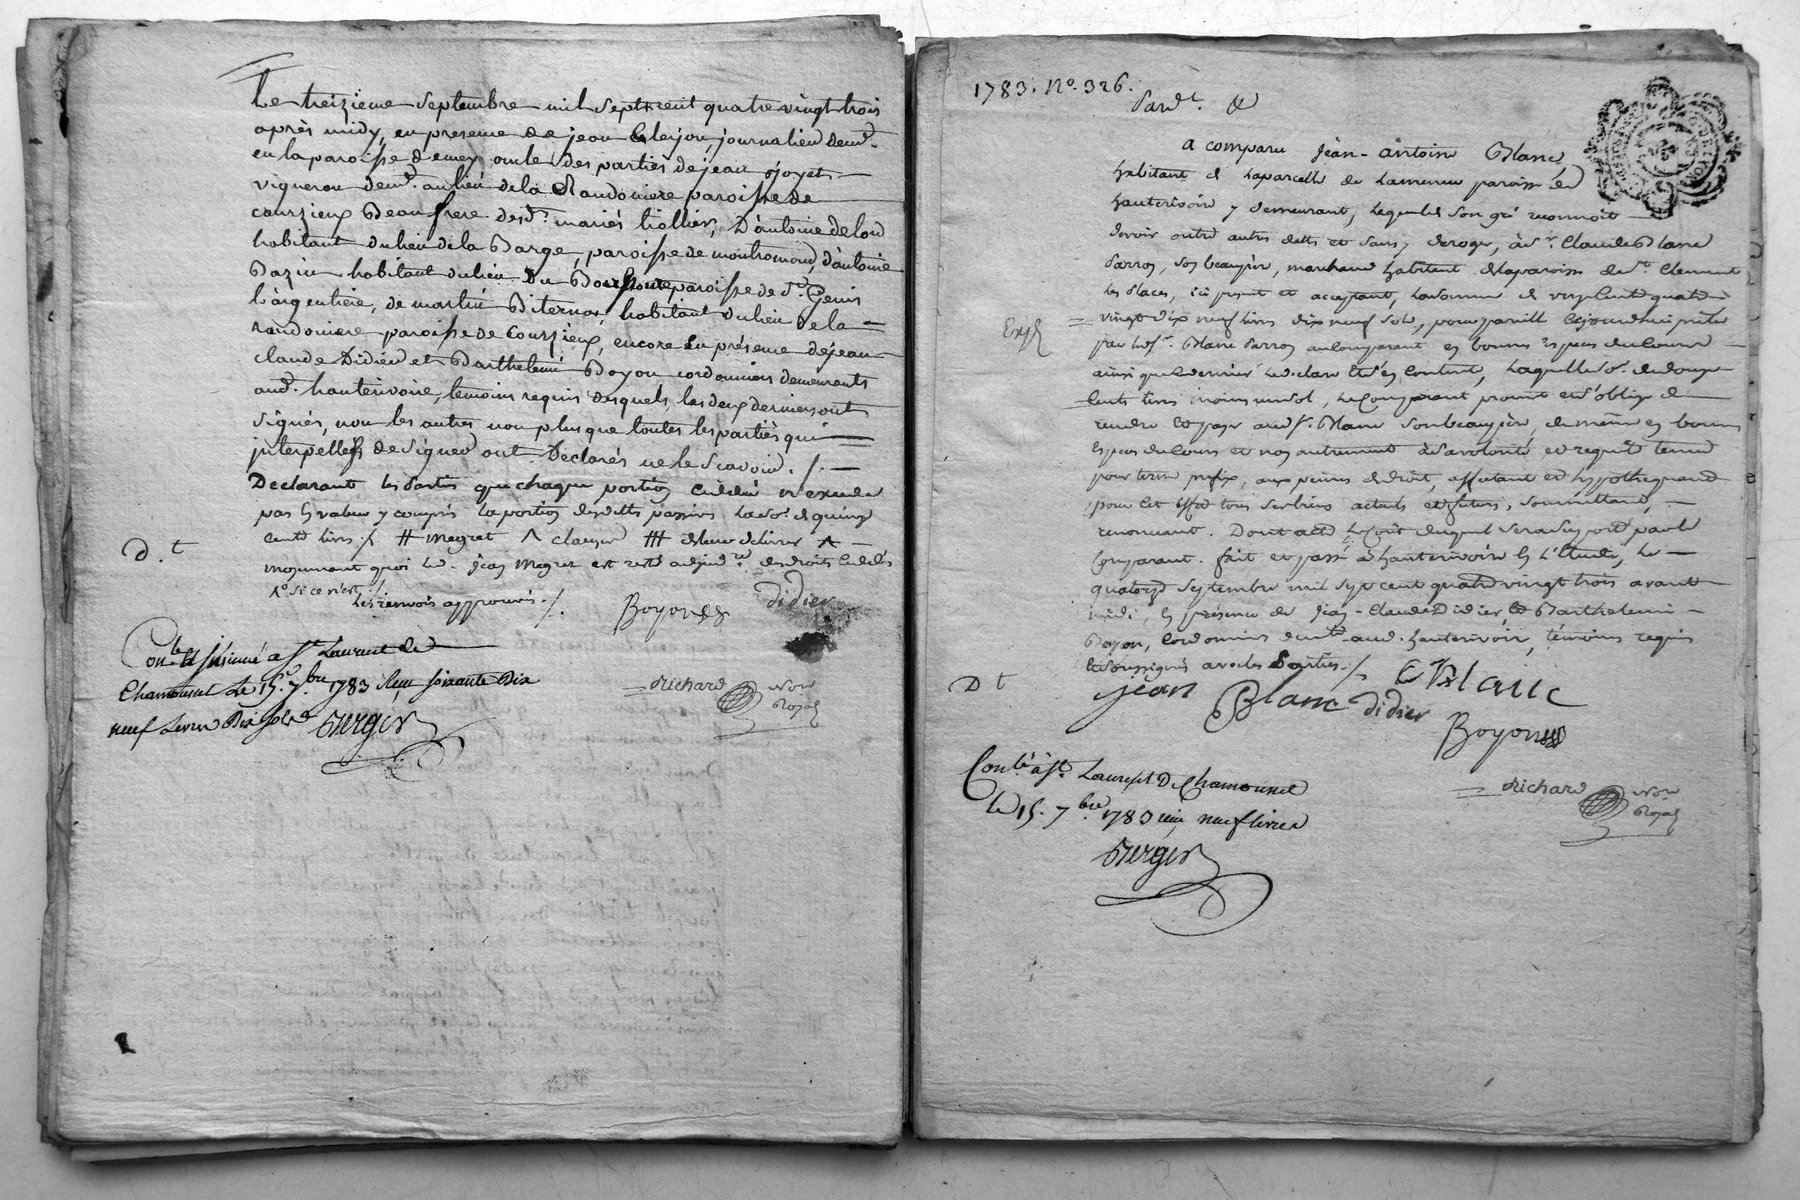 Le treizieme Septembre mil Sept cent quatre vingt trois
après midy, en presence de jean Clerjon, journalier dem.t
en la paroisse demey oncle des parties de jean joyet
vigneron dem.t au lieu de la Randoniere paroisse de
courzieux Beaufrere desd.t mariés tiollier, D'antoine
habitant du lieu de la Barge, paroisse de montromand, d'antoine
Bazin habitant du lieu du paroisse de S.t Genis
l'argentiere, de martin Biternay, habitant du lieu de la
randoniere paroisse de Courzieux, encore en présence de jean
claude Didier et Barthelemi Boyon cordonniers demeurants
aud.t hauterivoire, temoins requis desquels, les deux derniers ont
Signés, non les autres non plus que toutes les parties qui
interpellés de Signer ont Declarés ne le Scavoir ./.
Declarant les Parties que chaque portion cedée n'excede
pas la valeur y compris la portion desdettes passives la So.e de quinze
cents livres ./.
D.t
moyenant quoi led. jean Megret est resté
Les renvois approuvés ./.
Boyon
didier
Con.lé et insinué a S.t Laurent de
Chamousset Le 15.e 7.bre 1783 Reçu soixante Dix
neuf Livres Dix sols
Berger
Richard
Not.
Royal
1783. N.o 326.
Pard.t &
a comparu jean-antoine Blanc
habitant de la parcelle de Lamure paroisse d'
hauterivoire y demeurant, lequel de Son gré reconnoit
devoir outre autres dettes et Sans y deroger, à S.r Claude Blanc
Parron, Son beaupère, marchand habitant de la paroisse de S.t Clement
les Places, ici present et acceptant, la somme de cinq cents quatre
Exp.é
vingt dix neuf livres dix neuf Sols, pour pareille cejourd'hui prêtée
par led.S.r Blanc Parron au comparant en bonnes Especes du Cours
ainsi que ce dernier le declare et S'en Contente, laquelle So.e de Six
Cents livres moins un Sol, le Comparant promet et S'oblige de
rendre et payer aud.S.r Blanc Son beaupère, de même en bonnes
Especes du Cours et non autrement à Sa volonté et requête
pour terme prefix, aux peines de droit, affectant et hypothequant
pour cet effet tous Ses biens actuels et futurs, Soumettant,
renonçant. Dont acte, le Coût duquel Sera Suporté par le
Comparant. Fait et passé à hauterivoire En l'Etude, le
quatorze Septembre mil Sept cent quatre vingt trois avant
midi, En présence de jean-Claude Didier et Barthelemi
Boyon, Cordonniers dem.ts aud. hauterivoire, témoins requis
et Soussignés avec les Parties ./.
D t
jean Blanc
C Blanc
didier
Boyon
Con.lé à S.t Laurent De Chamousset
le 15. 7.bre 1783 reçu neuf livres
Berger
Richard
Not.
Royal